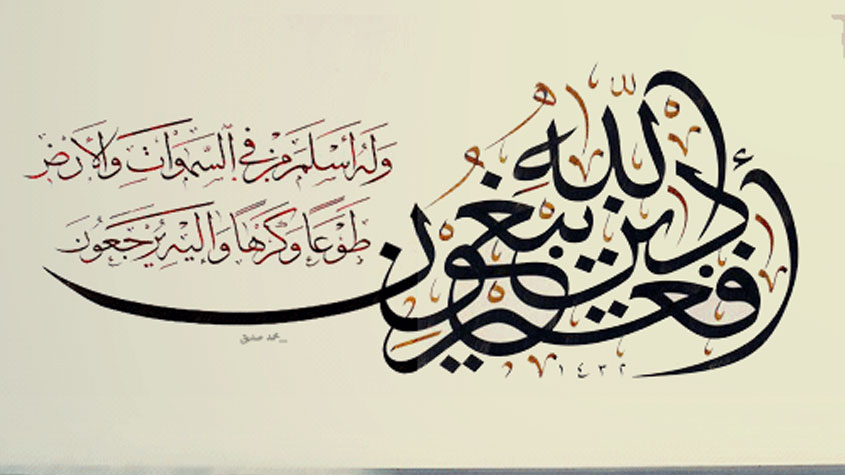 أفغير دين الله يبغون
وَلَهُ أَسْلَمَ مَنْ فِي السَّمَوَاتِ وَالْأَرْضِ
طَوْعًا وَكَرْهًا وَإِلَيْهِ يُرْجَعُونَ
١٤٣٢
محمد صديق